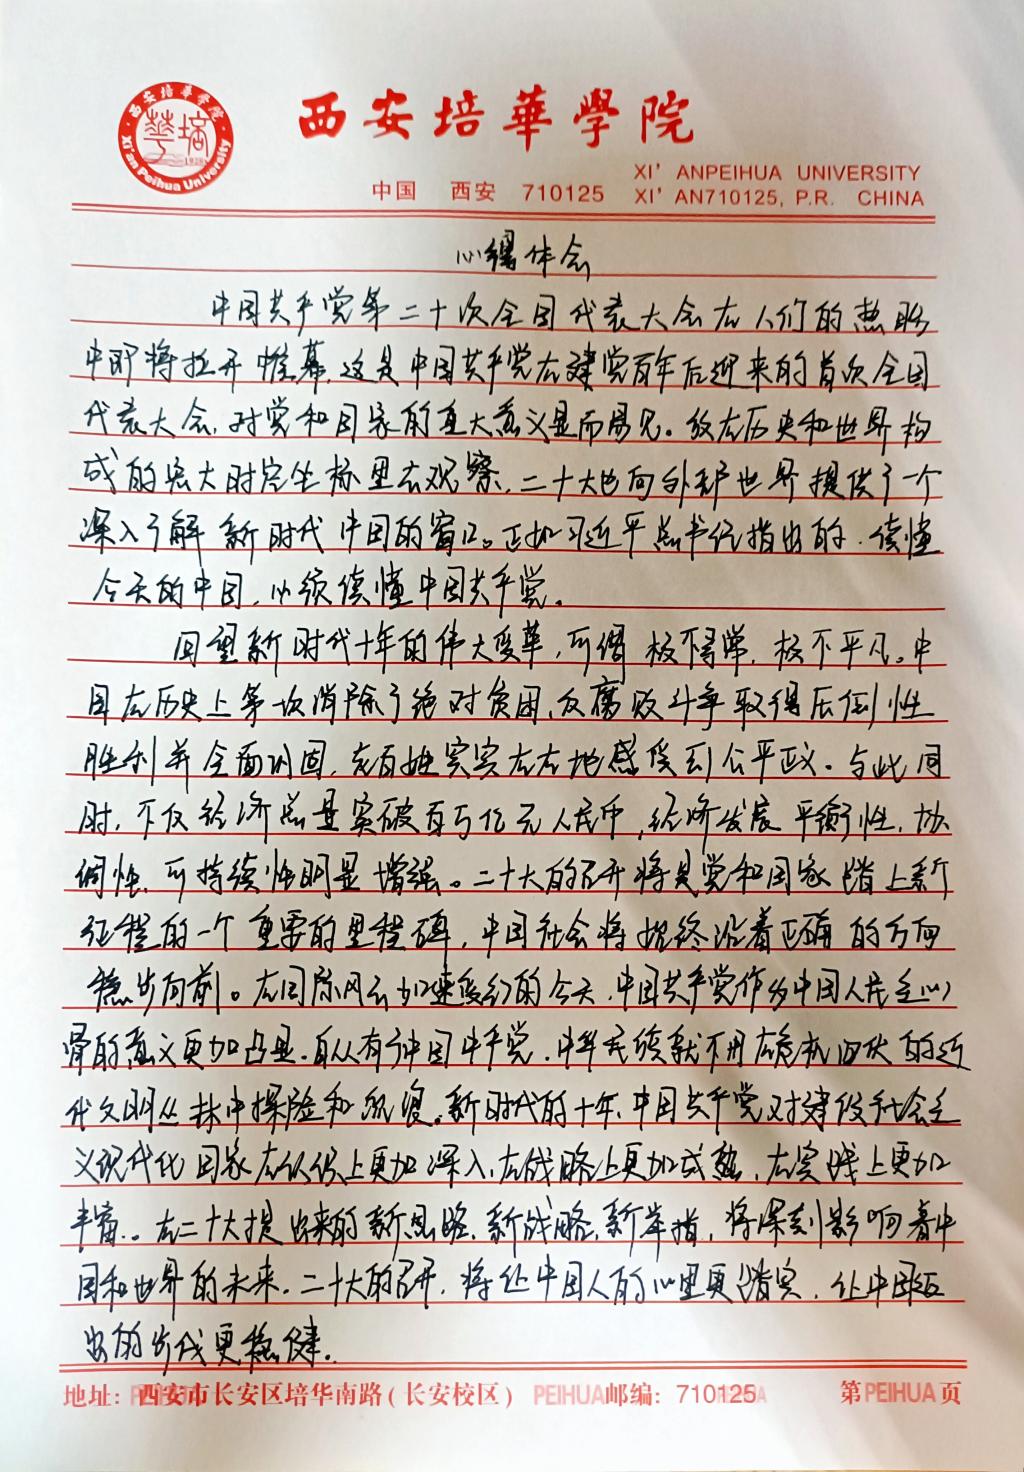 西安培華學院
XI' ANPEIHUA UNIVERSITY
中国 西安 710125 XI' AN710125, P.R. CHINA
西安培華學院
Xi'an Peihua University
1928
心得体会
中国共产党第二十次全国代表大会在人们的热盼
中即将拉开帷幕,这是中国共产党在建党百年后迎来的首次全国
代表大会,对党和国家的重大意义显而易见。放在历史和世界构
成的宏大时空坐标里去观察,二十大也向外部世界提供了一个
深入了解新时代中国的窗口。正如习近平总书记指出的,读懂
今天的中国,必须读懂中国共产党。
回望新时代十年的伟大变革,可谓极不寻常,极不平凡。中
国在历史上第一次消除了绝对贫困,反腐败斗争取得压倒性
胜利并全面巩固,老百姓实实在在地感受到公平正义。与此同
时,不仅经济总量突破百万亿元人民币,经济发展平衡性,协
调性,可持续性明显增强。二十大的召开将是党和国家踏上新
征程的一个重要的里程碑,中国社会将始终沿着正确的方向
稳步向前。在国际风云加速变幻的今天,中国共产党作为中国人民主心
骨的意义更加凸显,自从有了中国共产党,中华民族就不用在危机四伏的近
代文明丛林中探险和沉浸。新时代的十年,中国共产党对建设社会主
义现代化国家在认识上更加深入,在战略上更加成熟,在实践上更加
丰富。在二十大提出来的新思路,新战略,新举措,将深刻影响着中
国和世界的未来,二十大的召开,将让中国人的心里更踏实,让中国迈
出的步伐更稳健。
地址: 西安市长安区培华南路(长安校区) PEIHUA邮编: 710125 第PEIHUA页